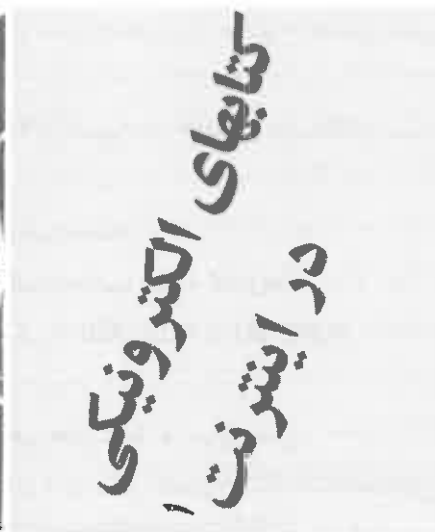 کتابهای الکترونیکی
در اینترنت